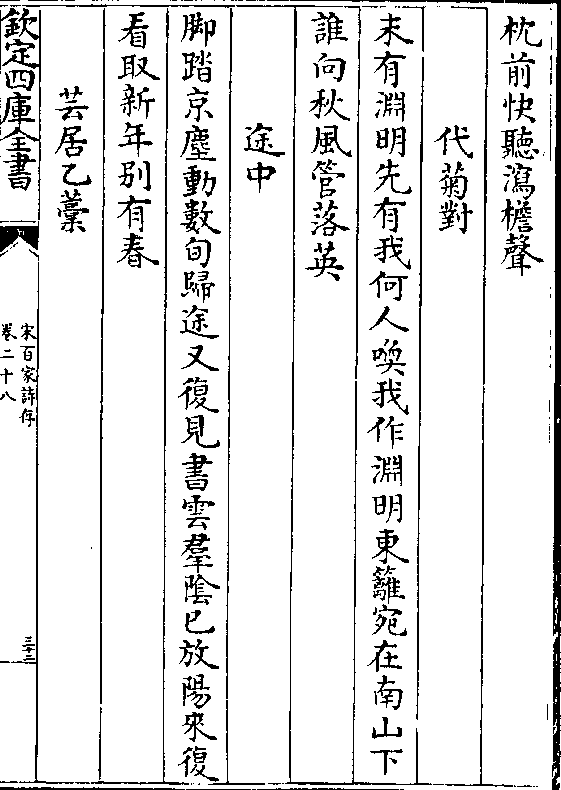 枕前快聽瀉檐聲
代菊對
未有淵明先有我何人喚我作淵明東籬宛在南山下
誰向秋風管落英
途中
脚踏京塵動數旬歸途又復見書雲羣陰已放陽來復
看取新年別有春
芸居乙藳
欽定四庫全書
宋百家詩存
卷二十八
三十二